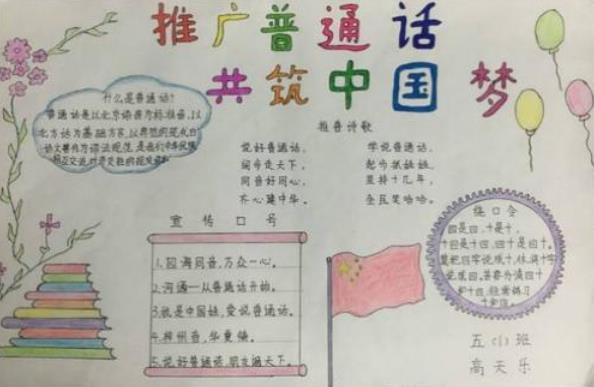 推广普通话
共筑中国梦
什么是普通话?
普通话是以北京语音为标准音,以
北方话为基础方言,以典范的现代白
话文著作为语法规范,是我们
推普诗歌
说好普通话,
闯今走天下,
同音好同心,
齐心建中华。
学说普通话,
起今抓娃娃,
坚持十几年,
全区笑哈哈。
宣传口号
1.四海同音,万众一心。
2.沟通——从普通话开始。
3.我是中国娃,爱说普通话。
4.神州音,华夏情。
5.说好普通话,朋友遍天下。
绕口令
四是四,十是十,
十四是十四,四十是四十。
莫把四字说成十,休将十字
说成四。若要分清四十
和十四,经常练习
十和四。
五(1)班
高天乐